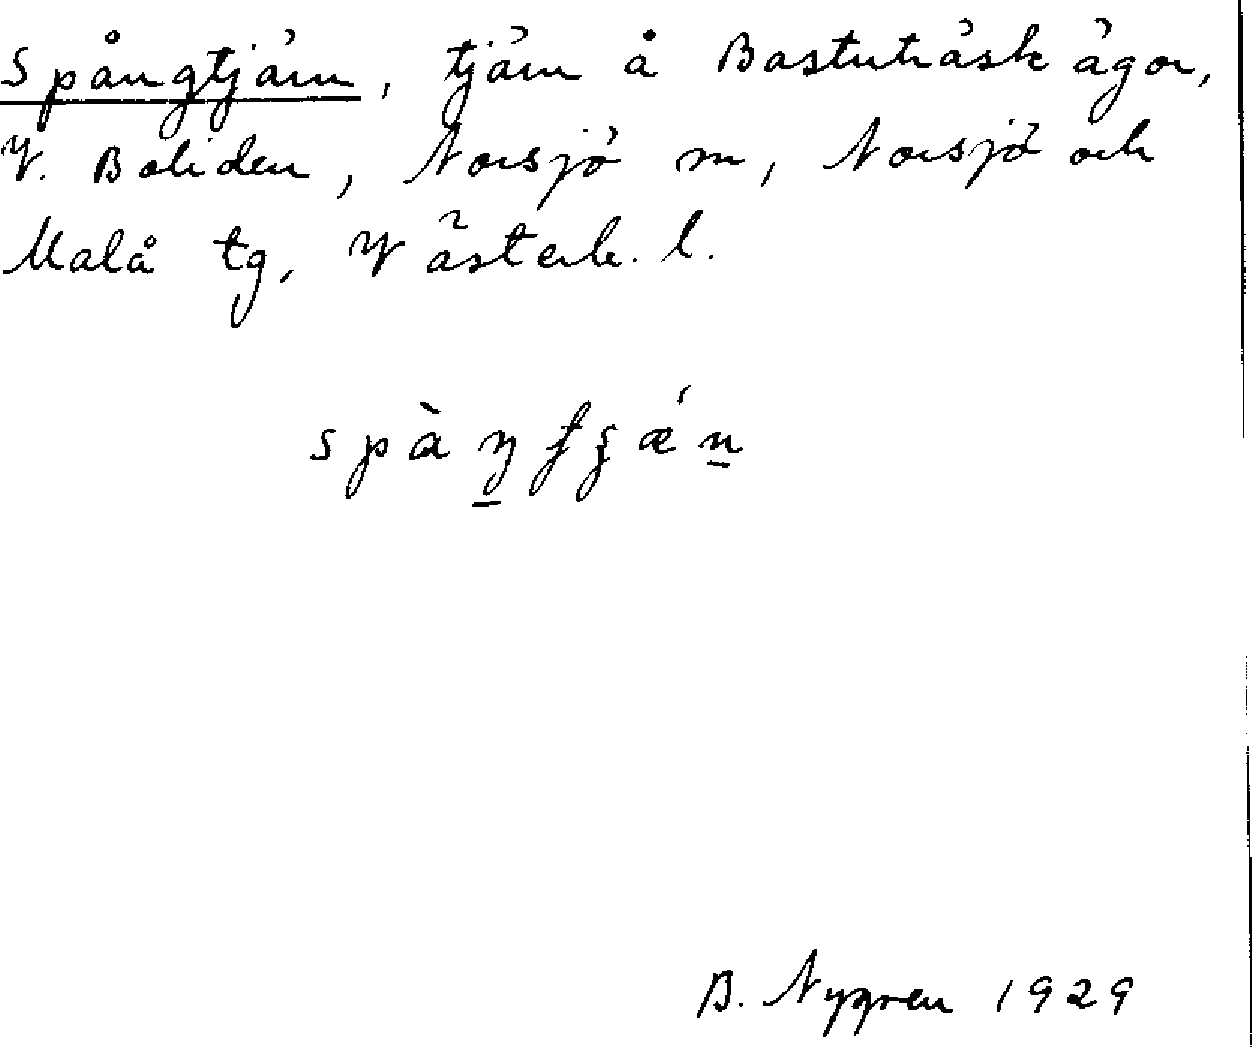 Spångtjärn, tjärn å Bastuträsk ägor,
V. Boliden, Norsjö sn, Norsjö och
Malå tg, Västerb. l.
B. Nygren 1929